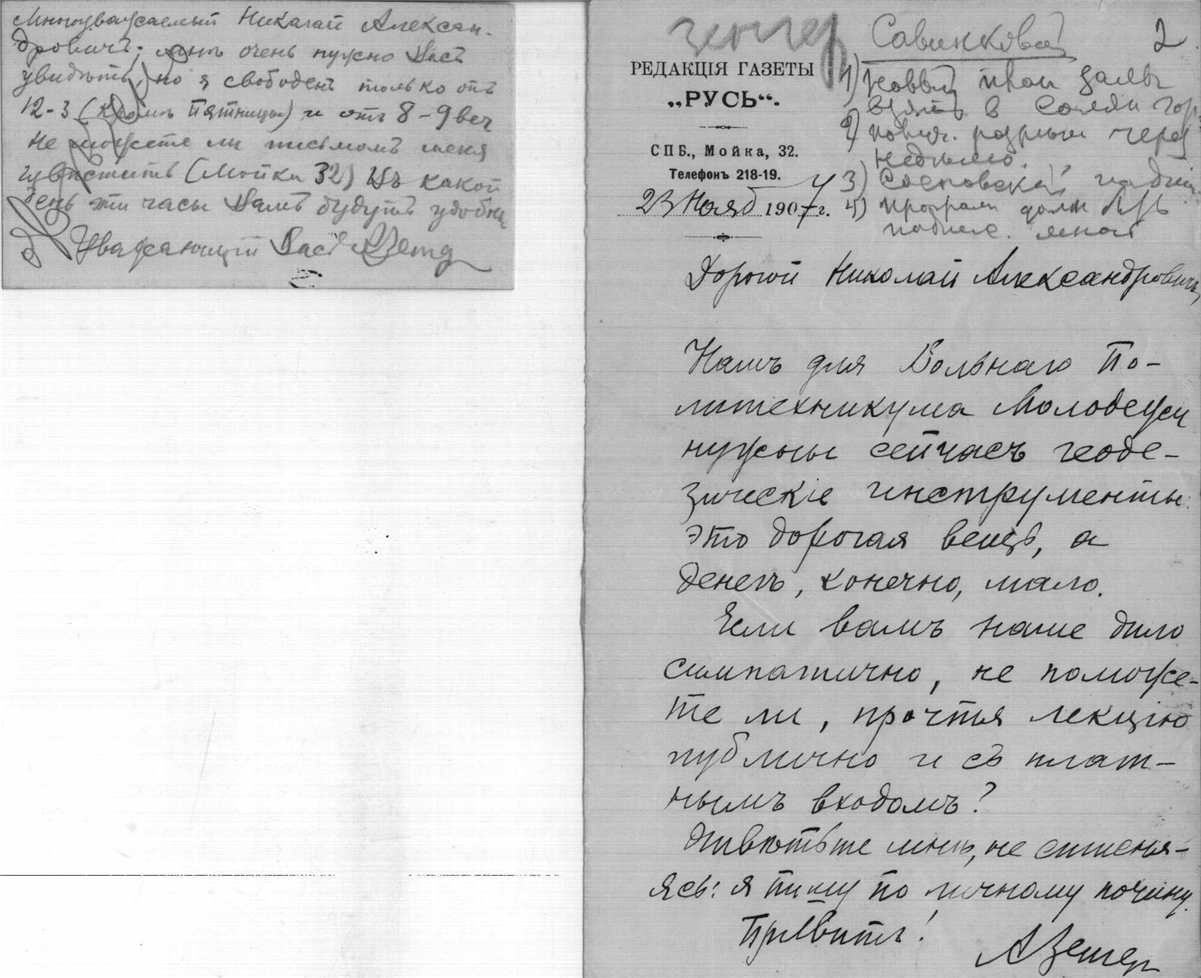 Многоуважаемый Николай Алексан-
дровичъ, мнѣ очень нужно Васъ
увидѣть, но я свободенъ только отъ
12-3 (кромѣ Пятницы) и отъ 8-9 веч
Не можете ли письмомъ меня
извѣстить (Мойка 32) въ какой
день эти часы Вамъ будутъ удобны
Уважающій Васъ
зенгер
Савинковой
2
РЕДАКЦІЯ ГАЗЕТЫ
„РУСЬ“.
СПБ., Мойка, 32.
Телефонъ 218-19.
23 Нояб 1907 г.
1)
взять в Солян гор
2) через
неделю.
3)
4)
мной
Дорогой Николай Александровичъ,
Намъ для Вольнаго По-
литехникума
нужны сейчасъ геоде-
зическіе инструменты.
Это дорогая вещь, а
денегъ, конечно, мало.
Если вамъ наше дѣло
симпатично, не поможе-
те ли, прочтя лекцію
публично и съ плат-
нымъ входомъ?
Отвѣтьте мнѣ, не стѣсня-
ясь: я пишу по личному почину.
Привѣтъ!
А Зенгер